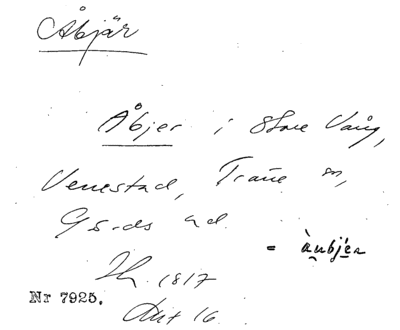 Åbjär
Åbjer i Store Vång,
Venestad, Träne sn,
Gärds hd.
= àubjer
1817
Nr 7925.
Akt 16